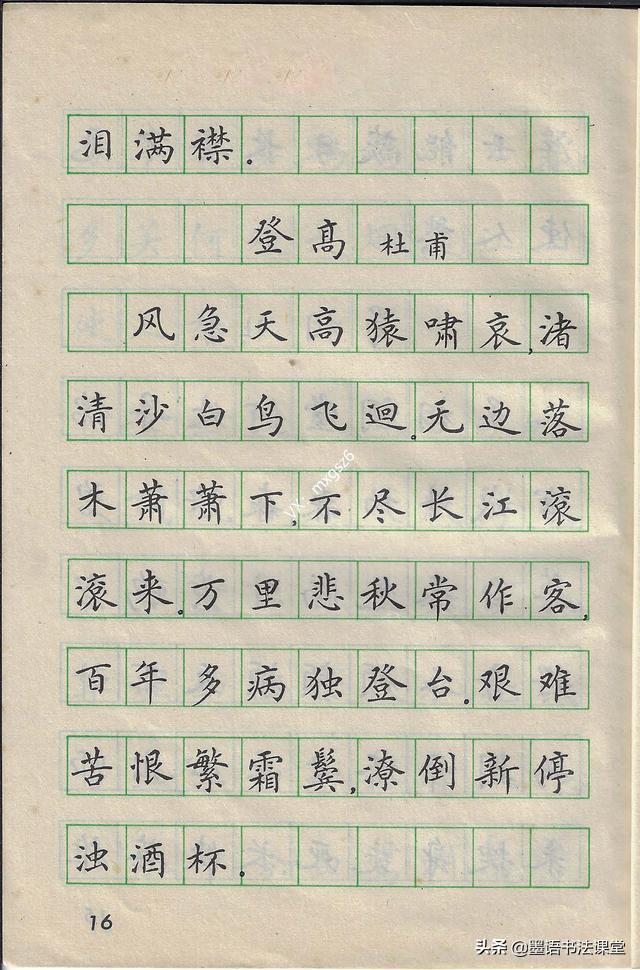 泪满襟.
登高 杜甫
风急天高猿啸哀,渚
清沙白鸟飞迴。无边落
木萧萧下,不尽长江滚
滚来。万里悲秋常作客,
百年多病独登台.艰难
苦恨繁霜鬓,潦倒新停
浊酒杯.
16
VX: mxgsz6
头条 @墨语书法课堂